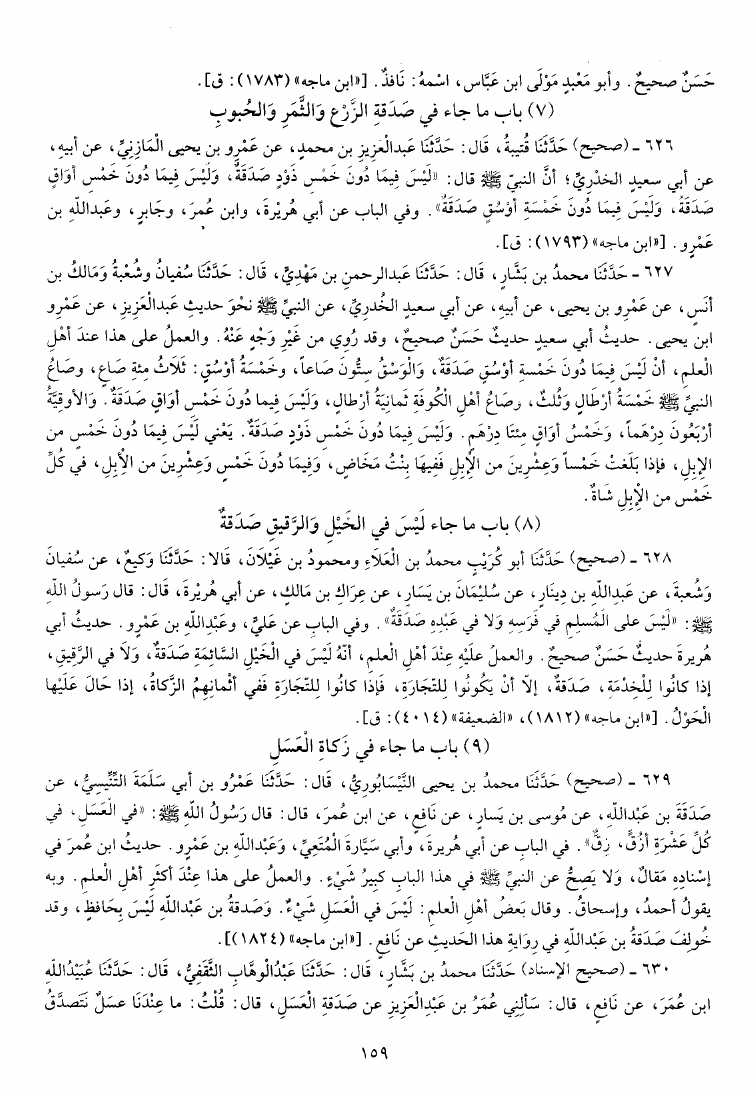 حَسَنٌ صحيحٌ. وأبو مَعْبَدٍ مَوْلَى ابن عَبَّاس، اسْمهُ: نَافذٌ. [«ابن ماجه» (١٧٨٣): ق].
(٧) باب ما جاء في صَدَقةِ الزَّرْع وَالثَّمَرِ وَالحُبوبِ
٦٢٦ ـ (صحيح) حَدَّثَنَا قُتيبةُ، قَال: حَدَّثَنَا عبدالعَزِيز بن محمدٍ، عن عَمْرِو بن يحيى الْمَازِنِيِّ، عن أبيهِ،
عن أبي سعيدٍ الخدْرِيِّ؛ أنَّ النبيّ ﷺ قال: «لَيْسَ فِيمَا دُونَ خَمْسِ ذَوْدٍ صَدَقَةٌ، وَلَيْسَ فِيمَا دُونَ خَمْسِ أوَاقٍ
صَدَقَةٌ، وَلَيْسَ فِيمَا دُونَ خَمْسَةِ أوْسُقٍ صَدَقَةٌ». وفي الباب عن أبي هُرَيْرةَ، وابن عُمَرَ، وجَابرٍ، وعَبداللّهِ بن
عَمْرٍو. [«ابن ماجه» (١٧٩٣): ق].
٦٢٧ ـ حَدَّثَنَا محمدُ بن بَشَّارٍ، قَال: حَدَّثَنَا عَبدالرحمنِ بن مَهْدِيّ، قَال: حَدَّثَنَا سُفيانُ وشُعْبةُ وَمَالكُ بن
أنَسٍ، عن عَمْرِو بن يحيى، عن أبيهِ، عن أبي سعيدٍ الخُدريِّ، عن النبيِّ ﷺ نحْوَ حديثِ عَبدالْعَزِيزِ، عن عَمْرِو
ابن يحيى. حديثُ أبي سعيدٍ حديثٌ حَسَنٌ صحيحٌ، وقد رُوِيَ من غَيْرِ وَجْهٍ عَنْهُ. والعملُ على هذا عندَ أهْلِ
الْعلمِ، أنْ لَيْسَ فِيمَا دُونَ خَمْسةِ أوْسُقٍ صَدَقَةٌ، وَالْوَسْقُ ستُّونَ صَاعاً، وخَمْسَةُ أوْسُقٍ: ثَلَاثُ مِئةِ صَاعٍ، وصَاعُ
النبيِّ ﷺ خَمْسَةُ أرْطَالٍ وَثُلثٌ، وصَاعُ أهْلِ الْكُوفَةِ ثَمَانِيَةُ أرْطالٍ، وَلَيْسَ فِيما دُونَ خَمْسِ أوَاقٍ صَدَقَةٌ. وَالأوقِيَّةُ
أرْبَعُونَ دِرْهَماً، وَخَمْسُ أوَاقٍ مِئتَا دِرْهَمٍ. وَلَيْسَ فِيمَا دُونَ خَمْسِ ذَوْدٍ صَدَقَةٌ. يَعْنِي لَيْسَ فِيمَا دُونَ خَمْسٍ من
الإبلِ، فإذا بَلَغتْ خَمْساً وَعِشْرِينَ من الإبلِ فَفِيهَا بِنْتُ مَخَاضٍ، وَفِيمَا دُونَ خَمْسٍ وَعِشْرينَ من الإبلِ، في كُلِّ
خَمْسٍ من الإبلِ شَاةٌ.
(٨) باب ما جاء لَيْسَ في الخَيْلِ وَالرَّقيقِ صَدَقةٌ
٦٢٨ ـ (صحيح) حَدَّثَنَا أبو كُرَيْبٍ محمدُ بن الْعَلَاءِ ومحمودُ بن غَيْلَانَ، قَالا: حَدَّثَنَا وَكيعٌ، عن سُفيانَ
وَشُعبةَ، عن عَبداللّهِ بن دِينَارٍ، عن سُليْمَانَ بن يَسَارٍ، عن عِرَاكِ بن مَالكٍ، عن أبي هُرَيْرةَ، قَالَ: قال رَسولُ اللّهِ
ﷺ: «لَيْسَ على الْمُسلِمِ في فَرَسِهِ وَلا في عَبْدِهِ صَدَقَةٌ». وفي البابِ عن عَليٍّ، وعَبْدِاللّهِ بن عَمْرٍو. حديثُ أبي
هُريرةَ حديثٌ حَسَنٌ صحيحٌ. والعملُ علَيْهِ عِنْدَ أهْلِ العلمِ، أنَّهُ لَيْسَ في الْخَيْلِ السَّائِمَةِ صَدَقةٌ، وَلَا في الرَّقِيقِ،
إذا كانُوا لِلْخِدْمَةِ، صَدَقةٌ، إلاّ أنْ يَكُونُوا لِلتّجَارَةِ، فَإذَا كانُوا لِلتّجَارَةِ فَفي أثْمانِهِمُ الزَّكاةُ، إذا حَالَ عَلَيْها
الْحَوْلُ. [«ابن ماجه» (١٨١٢)، «الضعيفة» (٤٠١٤): ق].
(٩) باب ما جاء في زَكاةِ الْعَسَلِ
٦٢٩ ـ (صحيح) حَدَّثَنَا محمدُ بن يحيى النَّيْسَابُورِيُّ، قَال: حَدَّثَنَا عَمْرُو بن أبي سَلَمَةَ التِّنِّيسِيُّ، عن
صَدَقَةَ بن عَبْداللّهِ، عن مُوسى بن يَسارٍ، عن نَافعٍ، عن ابن عُمرَ، قَال: قال رَسُولُ اللّهِ ﷺ: «في الْعَسَلِ، في
كُلِّ عَشْرَةِ أزُقٍّ، زِقٌّ». في البابِ عن أبي هُريرةَ، وأبي سَيَّارةَ الْمُتَعِيِّ، وَعَبْدِاللّهِ بن عَمْرٍو. حديثُ ابن عُمرَ في
إسْنادِهِ مَقَالٌ، وَلَا يَصِحُّ عن النبيِّ ﷺ في هذا البابِ كبيرُ شَيْءٍ. والعملُ على هذا عِنْدَ أكثَرِ أهْلِ العلمِ. وبه
يقولُ أحمدُ، وإسحاقُ. وقال بَعْضُ أهْلِ العلمِ: لَيْسَ في الْعَسَلِ شَيْءٌ. وَصَدقةُ بن عَبْداللّهِ لَيْسَ بِحَافظٍ، وقد
خُولِفَ صَدَقةُ بن عَبْدِاللّهِ في رِوَايَةِ هذا الحَديثِ عن نَافعٍ. [«ابن ماجه» (١٨٢٤)].
٦٣٠ ـ (صحيح الإسناد) حَدَّثَنَا محمدُ بن بَشَّارٍ، قَال: حَدَّثَنَا عَبْدُالْوهَّابِ الثَّقَفِيُّ، قَال: حَدَّثَنَا عُبَيْدُاللّهِ
ابن عُمَرَ، عن نَافعٍ، قال: سَألَنِي عُمَرُ بن عَبْدالعَزِيزِ عن صَدَقَةِ الْعَسَلِ، قَال: قُلْتُ: ما عِنْدَنَا عسَلٌ نَتَصدَّقُ
١٥٩